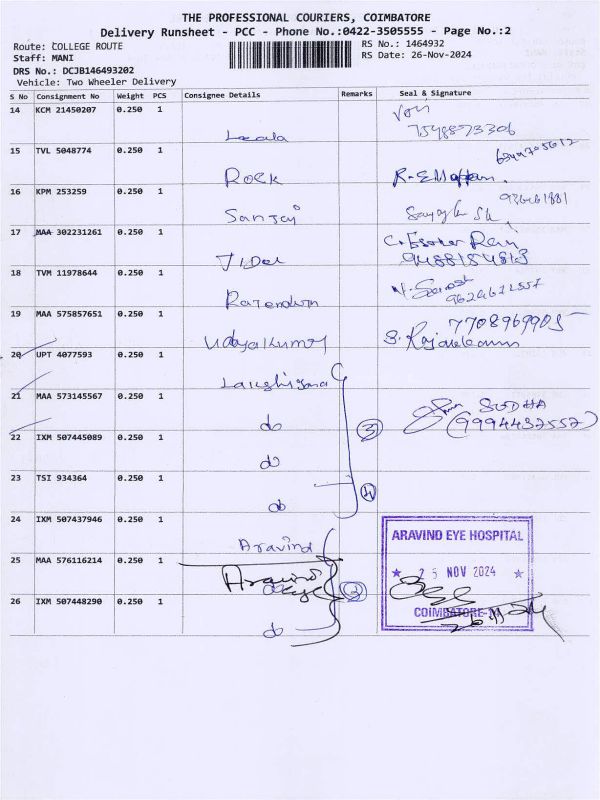 THE PROFESSIONAL COURIERS, COIMBATORE
Delivery Runsheet - PCC - Phone No.:0422-3505555 - Page No.:2
Route: COLLEGE ROUTE
RS No.: 1464932
Staff: MANI
RS Date: 26-Nov-2024
DRS No.: DCJB146493202
Vehicle: Two Wheeler Delivery
S No Consignment No Weight PCS Consignee Details Remarks Seal & Signature
14 KCM 21450207 0.250 1
Leela
15 TVL 5048774 0.250 1
Rock
16 KPM 253259 0.250 1
Sanjai
17 MAA 302231261 0.250 1
9488154813
18 TVM 11978644 0.250 1
Rajendran
19 MAA 575857651 0.250 1
7708969905
Udayakumar
20 UPT 4077593 0.250 1
21 MAA 573145567 0.250 1
do
SUDHA
(9994437557)
22 IXM 507445089 0.250 1
do
3
23 TSI 934364 0.250 1
do
4
24 IXM 507437946 0.250 1
Aravind
ARAVIND EYE HOSPITAL
25 MAA 576116214 0.250 1
Aravind
Eye
do
3
★ 25 NOV 2024 ★
26 IXM 507448290 0.250 1
do